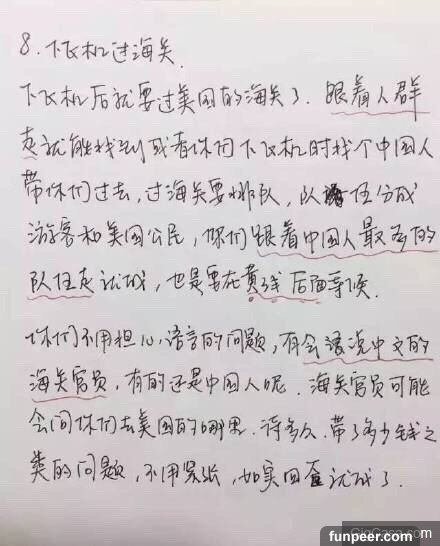 8. 下飞机过海关.
下飞机后就要过美国的海关了. 跟着人群
走就能找到或者你们下飞机时找个中国人
带你们过去, 过海关要排队, 队伍分成
游客和美国公民, 你们跟着中国人最多的
队伍走就成, 也是要在黄线后面等候.
你们不用担心语言的问题, 有会说中文的
海关官员, 有的还是中国人呢. 海关官员可能
会问你们去美国的哪里. 待多久. 带了多少钱之
类的问题, 不用紧张, 如实回答就成了.
GigCasa.com
funpeer.com